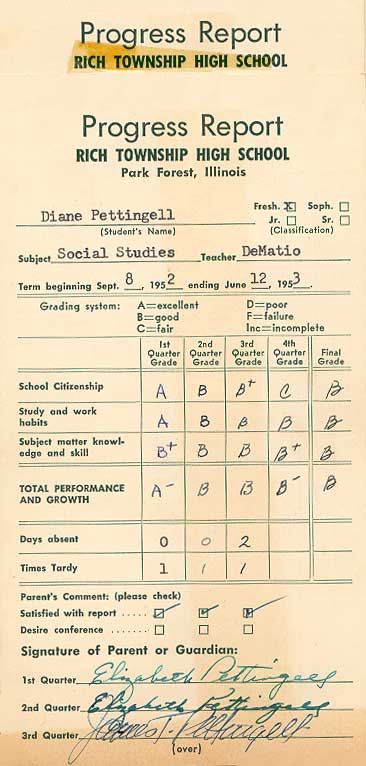 Progress Report
RICH TOWNSHIP HIGH SCHOOL
Progress Report
RICH TOWNSHIP HIGH SCHOOL
Park Forest, Illinois
Diane Pettingell Fresh. X Soph.
(Student's Name) Jr. Sr.
(Classification)
Subject Social Studies Teacher DeMatio
Term beginning Sept. 8, 1952 ending June 12, 1953.
Grading system: A=excellent D=poor
B=good F=failure
C=fair Inc=incomplete
1st Quarter Grade 2nd Quarter Grade 3rd Quarter Grade 4th Quarter Grade Final Grade
School Citizenship A B B+ C B
Study and work habits A B B B B
Subject matter knowl-edge and skill B+ B B B+ B
TOTAL PERFORMANCE AND GROWTH A- B B B- B
Days absent 0 0 2
Times Tardy 1 1 1
Parent's Comment: (please check)
Satisfied with report ......
Desire conference ......
Signature of Parent or Guardian:
1st Quarter Elizabeth Pettingell
2nd Quarter Elizabeth Pettingell
3rd Quarter James T. Pettingell
(over)